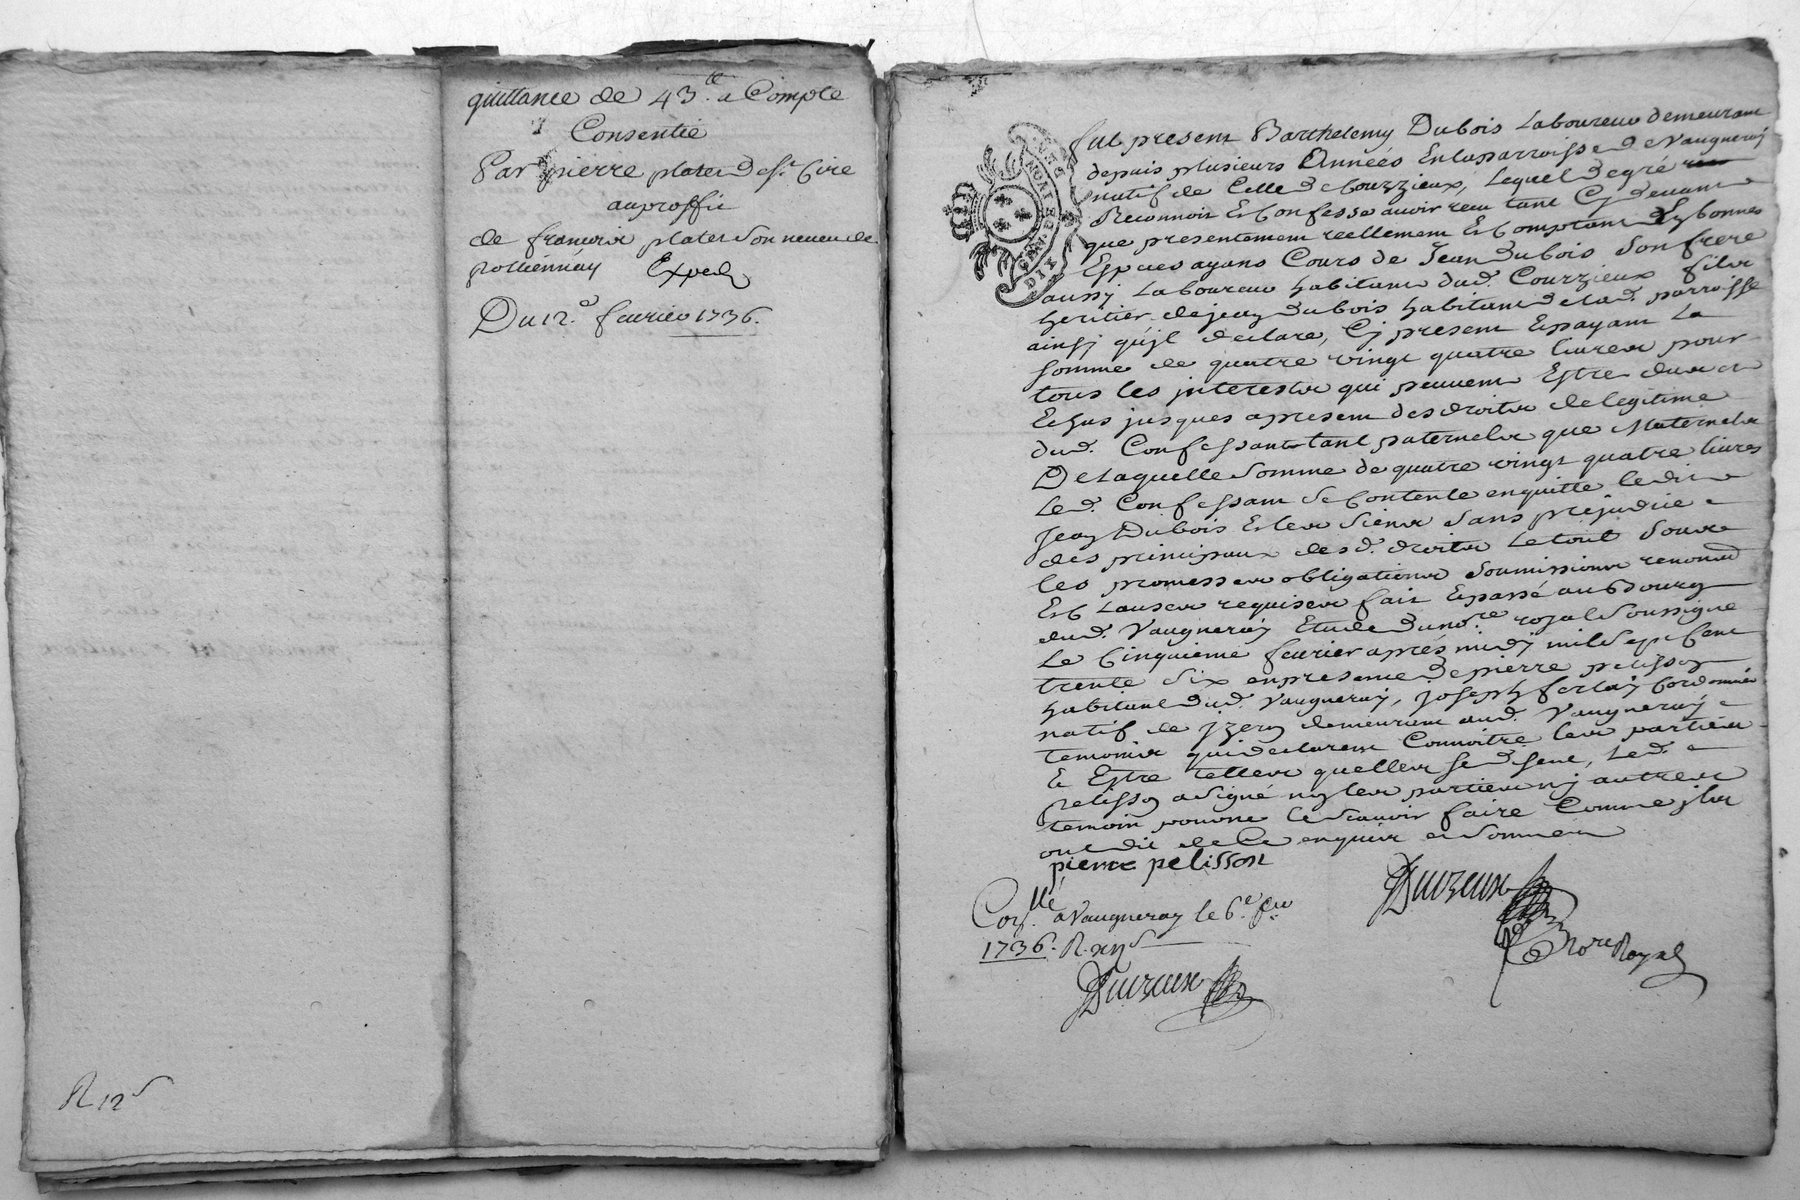 quittance de 43.# a Compte
Consentie
Par pierre plater de St. Cire
au proffit
de francoix plater son neveu de
polliennay Exped
Du 12.e fevrier 1736.
R 12s
fut present Barthelemy Dubois Laboureur demeurant
depuis plusieurs Années En la parroisse de Vaugneray
natif de Celle de Courzzieux, Lequel de gré
Reconnoit Et Confesse avoir recu tant Cy devant
que presentement reellement Et Comptant Et bonnes
Especes ayans Cours de Jean dubois son frere
aussy Laboureur habitant dud. Courzieux fils
heritier de jean dubois habitant de lad. parroisse
ainsy qu'jl declare, Cy present Et payant La
somme de quatre vingt quatre livres pour
tous les jnterests qui peuvent Estre dus et
Echus jusques a present des droits de legitime
dud. Confessant tant paternels que Maternels
De laquelle somme de quatre vingt quatre livres
Led. Confessant Se Contente en quitte ledit
Jean Dubois Et les siens sans prejudice
des principaux desd. droits Le tout sous
les promesses obligations soumissions renond
Et Clauses requises fait Et passé au Bourg
dud. Vaugneray Etude du nore. royal soussigné
Le Cinquieme fevrier aprés midy mil sept Cent
trente six en presence de pierre pelisson
habitant dud. Vaugneray, joseph ferlay Cordonnier
natif de jzeron demeurant aud. Vaugneray
temoins qui declarent Connoitre les parties
Et Estre telles quelles se disent, Led.
pelisson a signé ny les parties ny autre
temoin pour ne le scavoir faire Comme jls
ont dit de Ce enquis et sommés
pierre pelisson
Con.llé a Vaugneray le 6.e fer
1736. R. xijs
Duvzeux
Nore Royal
Duvzeux